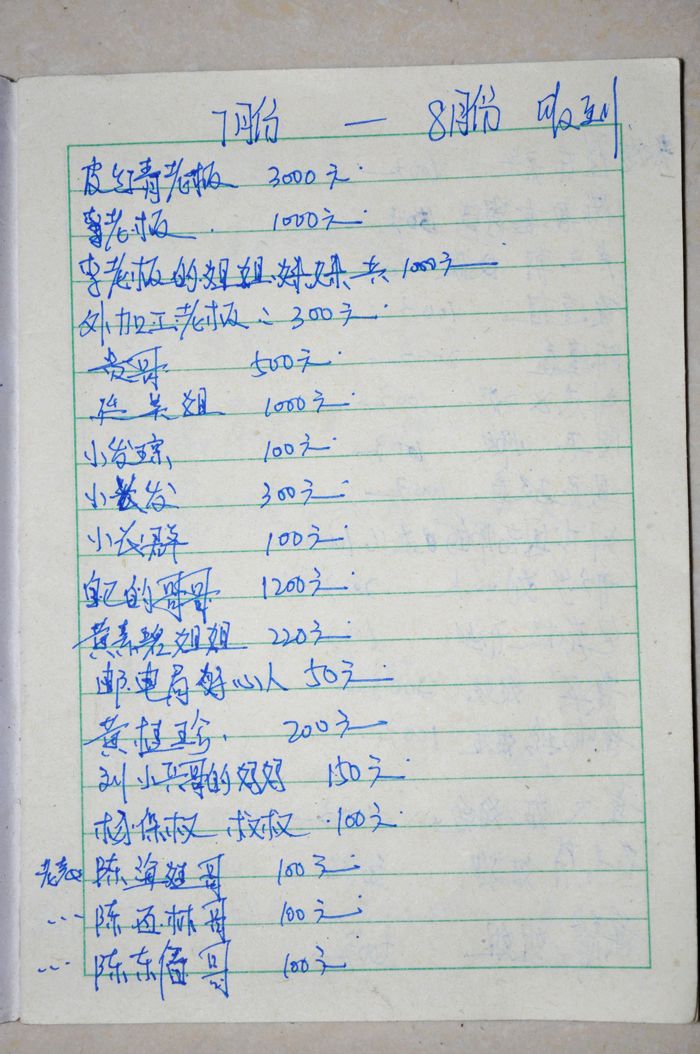 7月份 — 8月份 收到
皮红青老板 3000元
李老板 1000元
李老板的姐姐妹妹共1000元
外加工老板:300元
贵哥 500元
姐 1000元
小发琼 100元
小发 300元
小群 100元
自己的哥哥 1200元
黄素碧姐姐 220元
邮电局好心人 50元
黄桂珍 200元
刘小兵哥的妈妈 150元
杨保权 叔叔 100元
陈海 哥 100元
... 陈 林哥 100元
... 陈东 哥 100元